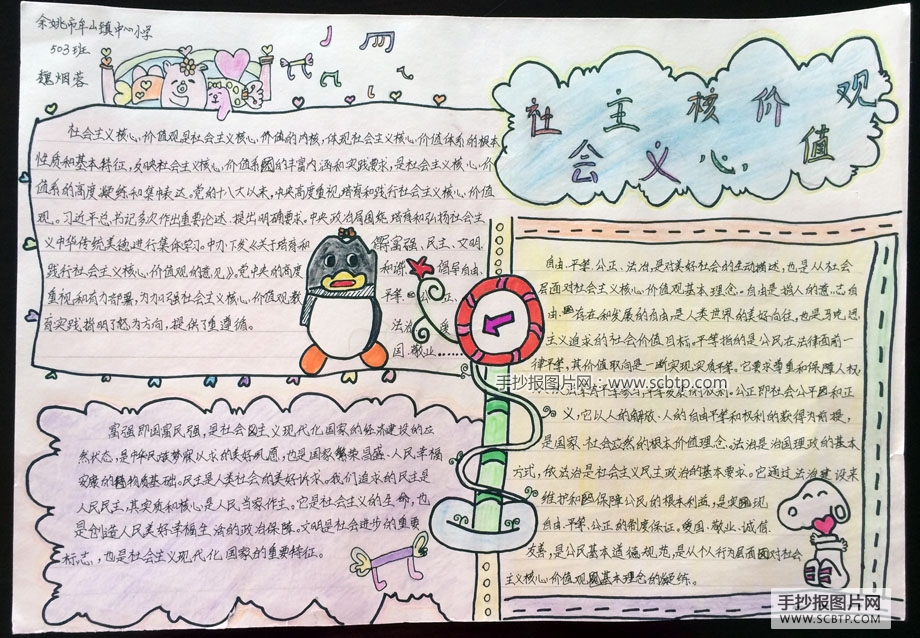 余姚市牟山镇中心小学
503班
魏烟蓉
社会主义核心价值观
社会主义核心价值观是社会主义核心价值的内核,体现社会主义核心价值体系的根本
性质和基本特征,反映社会主义核心价值系的丰富内涵和实践要求,是社会主义核心价
值系的高度凝练和集中表达。党的十八大以来,中央高度重视培育和践行社会主义核心价值
观。习近平总书记多次作出重要论述,提出明确要求。中央政治局围绕培育和弘扬社会主
义中华传统美德进行集体学习。中办下发《关于培育和
践行社会主义核心价值观的意见》。党中央的高度
重视和有力部署,为加强社会主义核心价值观教
育实践指明了努力方向,提供了重遵循。
富强、民主、文明,
和谐 倡导自由、
平等 公正、
法治 爱
国、敬业……
富强即国富民强,是社会主义现代化国家的经济建设的应
然状态,是中华民族梦寐以求的美好夙愿,也是国家繁荣昌盛、人民幸福
安康的物质基础。民主是人类社会的美好诉求。我们追求的民主是
人民民主,其实质和核心是人民当家作主。它是社会主义的生命,也
是创造人民美好幸福生活的政治保障。文明是社会进步的重要
标志,也是社会主义现代化国家的重要特征。
自由、平等、公正、法治,是对美好社会的生动描述,也是从社会
层面对社会主义核心价值观基本理念。自由是指人的意志自
由、存在和发展的自由,是人类世界的美好向往,也是马克思
主义追求的社会价值目标。平等指的是公民在法律面前一
律平等,其价值取向是断实现实质平等。它要求尊重和保障人权,
发展的权利。公正即社会公平和正
义,它以人的解放、人的自由平等和权利的获得为前提,
是国家、社会应然的根本价值理念。法治是治国理政的基本
方式,依法治是社会主义民主政治的基本要求。它通过法治建设来
维护和保障公民的根本利益,是实现
自由、平等、公正的制度保证。爱国、敬业、诚信、
友善,是公民基本道德规范,是从个人行为层面对社会
主义核心价值观基本理念的凝练。
手抄报图片网:www.scbtp.com
手抄报图片网
WWW.SCBTP.COM